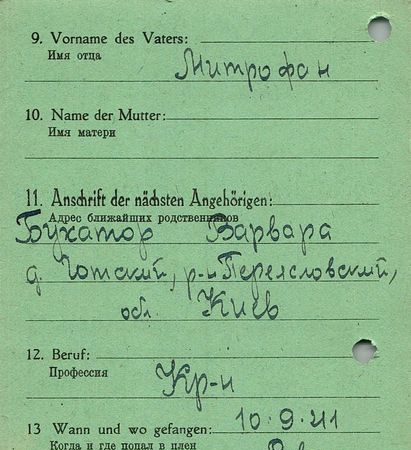 9. Vorname des Vaters:
Имя отца
Митрофан
10. Name der Mutter:
Имя матери
11. Anschrift der nächsten Angehörigen:
Адрес ближайших родственников
Бухатор Варвара
д. Готский, р-н Переясловский,
обл. Киев
12. Beruf:
Профессия
Кр-н
13 Wann und wo gefangen: 10.9.41
Когда и где попал в плен